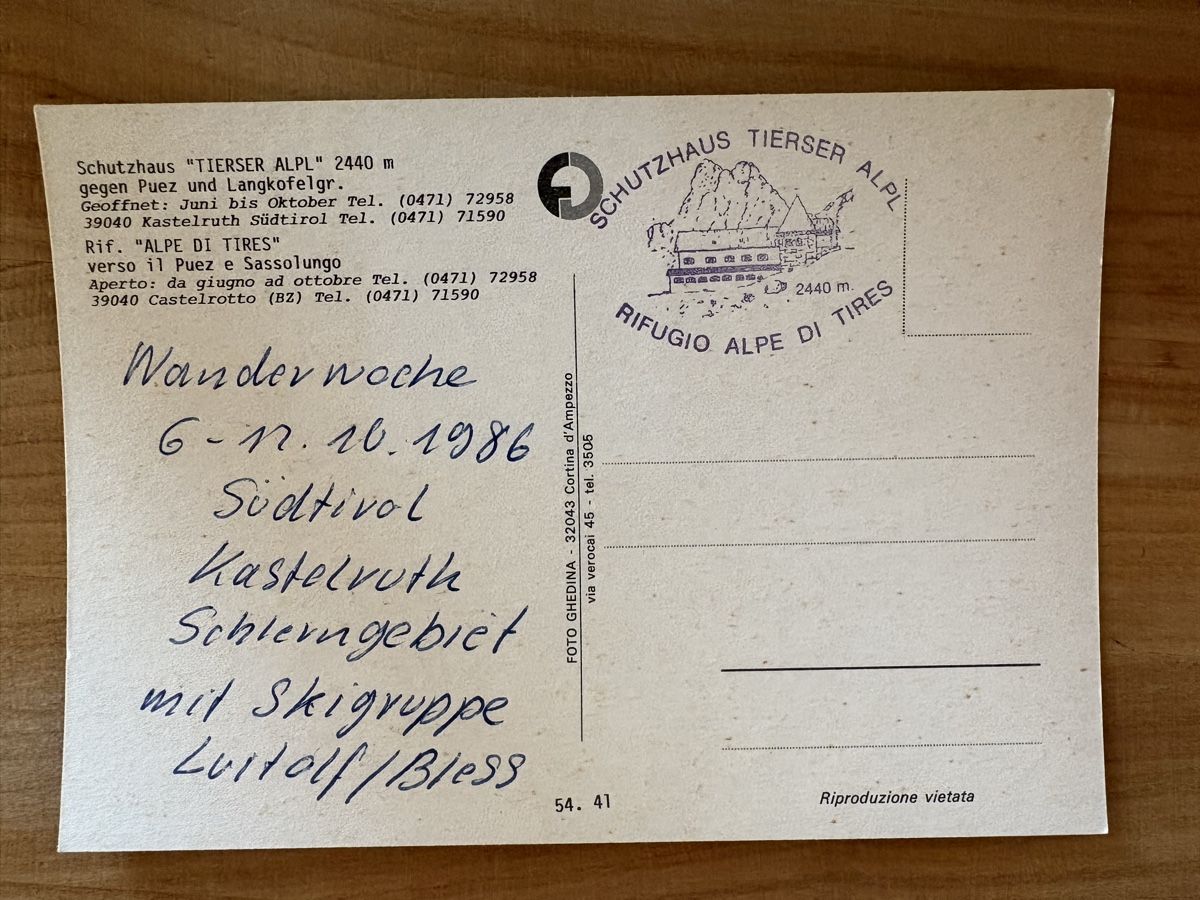 Schutzhaus "TIERSER ALPL" 2440 m
gegen Puez und Langkofelgr.
Geoffnet: Juni bis Oktober Tel. (0471) 72958
39040 Kastelruth Südtirol Tel. (0471) 71590
Rif. "ALPE DI TIRES"
verso il Puez e Sassolungo
Aperto: da giugno ad ottobre Tel. (0471) 72958
39040 Castelrotto (BZ) Tel. (0471) 71590
Wanderwoche
6 - 12. 10. 1986
Südtirol
Kastelruth
Schlerngebiet
mit Skigruppe
Luitolf / Bless
FOTO GHEDINA - 32043 Cortina d'Ampezzo
via verocai 45 - tel. 3505
54. 41
SCHUTZHAUS TIERSER ALPL
2440 m.
RIFUGIO ALPE DI TIRES
Riproduzione vietata